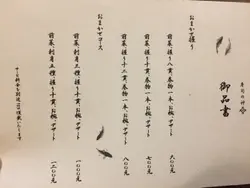 御品書
おまかせ握り
前菜 握り八貫 巻物一本 お椀 デザート 六〇〇元
前菜 握り十貫 巻物一本 お椀 デザート 七〇〇元
前菜 握り十二貫 巻物一本 お椀 デザート 八〇〇元
おまかせコース
前菜 刺身三種 握り十貫 お椀 デザート 一〇〇〇元
前菜 刺身五種 握り十貫 お椀 デザート 一二〇〇元